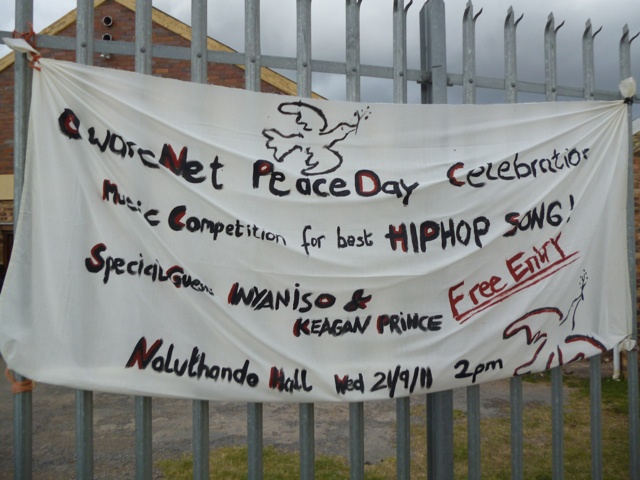 AwareNet Peace Day Celebration
Music Competition for best HIPHOP SONG!
Special Guest INYANISO &
KEAGAN PRINCE
Free Entry
Noluthando Hall Wed 21/9/11 2pm